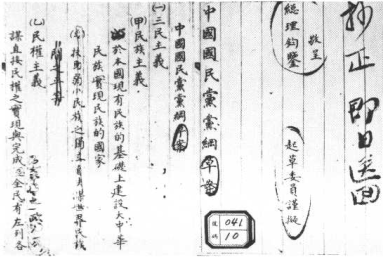 抄正 即日送四
敬呈
總理鈞鑒
起草委員謹擬
中國國民黨黨綱草案
041
10
中國國民黨黨綱草案
(一)三民主義
(甲)民族主義
於本國現有民族的基礎上建設大中華
民族實現民族的國家
扶助弱小民族之獨立自
世界民族
(乙)民權主義
謀直接民權之實現與完成 全民有左列各